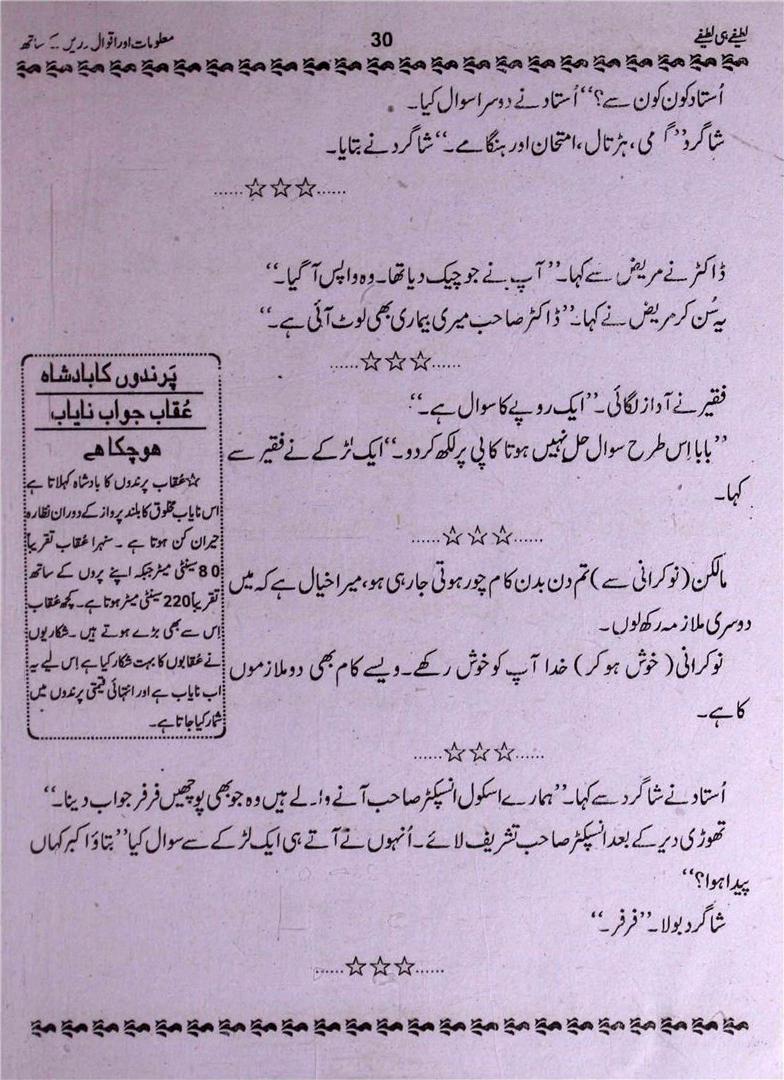 لطیفے ہی لطیفے
30
معلومات اور اقوال زریں کے ساتھ
اُستاد کون کون سے؟‘‘ اُستاد نے دوسرا سوال کیا۔
شاگرد’’ گرمی، ہڑتال، امتحان اور ہنگامے۔‘‘ شاگرد نے بتایا۔
......☆☆☆......
ڈاکٹر نے مریض سے کہا۔’’ آپ نے جو چیک دیا تھا۔ وہ واپس آ گیا۔‘‘
یہ سُن کر مریض نے کہا۔’’ ڈاکٹر صاحب میری بیماری بھی لوٹ آئی ہے۔‘‘
......☆☆☆......
فقیر نے آواز لگائی۔’’ ایک روپے کا سوال ہے۔‘‘
’’بابا اِس طرح سوال حل نہیں ہوتا کاپی پر لکھ کر دو۔‘‘ ایک لڑکے نے فقیر سے
کہا۔
......☆☆☆......
مالکن (نوکرانی سے) تم دن بدن کام چور ہوتی جا رہی ہو، میرا خیال ہے کہ میں
دوسری ملازمہ رکھ لوں۔
نوکرانی (خوش ہو کر) خدا آپ کو خوش رکھے۔ ویسے کام بھی دو ملازموں
کا ہے۔
......☆☆☆......
پَرندوں کا بادشاہ
عُقاب جواب نایاب
ہوچکا ہے
☆عُقاب پرندوں کا بادشاہ کہلاتا ہے
اس نایاب مخلوق کا بلند پرواز کے دوران نظارہ
حیران کن ہوتا ہے ۔ سنہرا عُقاب تقریباً
80 سینٹی میٹر جبکہ اپنے پروں کے ساتھ
تقریباً 220 سینٹی میٹر ہوتا ہے۔ کچھ عُقاب
اِس سے بھی بڑے ہوتے ہیں ۔ شکاریوں
نے عُقابوں کا بہت شکار کیا ہے اِس لیے یہ
اب نایاب ہے اور انتہائی قیمتی پرندوں میں
شمار کیا جاتا ہے۔
اُستاد نے شاگرد سے کہا۔’’ ہمارے اسکول انسپکٹر صاحب آنے والے ہیں وہ جو بھی پوچھیں فرفر جواب دینا۔‘‘
تھوڑی دیر کے بعد انسپکٹر صاحب تشریف لائے۔ اُنہوں نے آتے ہی ایک لڑکے سے سوال کیا’’ بتاؤ اکبر کہاں
پیدا ہوا؟‘‘
شاگرد بولا۔’’ فرفر۔‘‘
......☆☆☆......